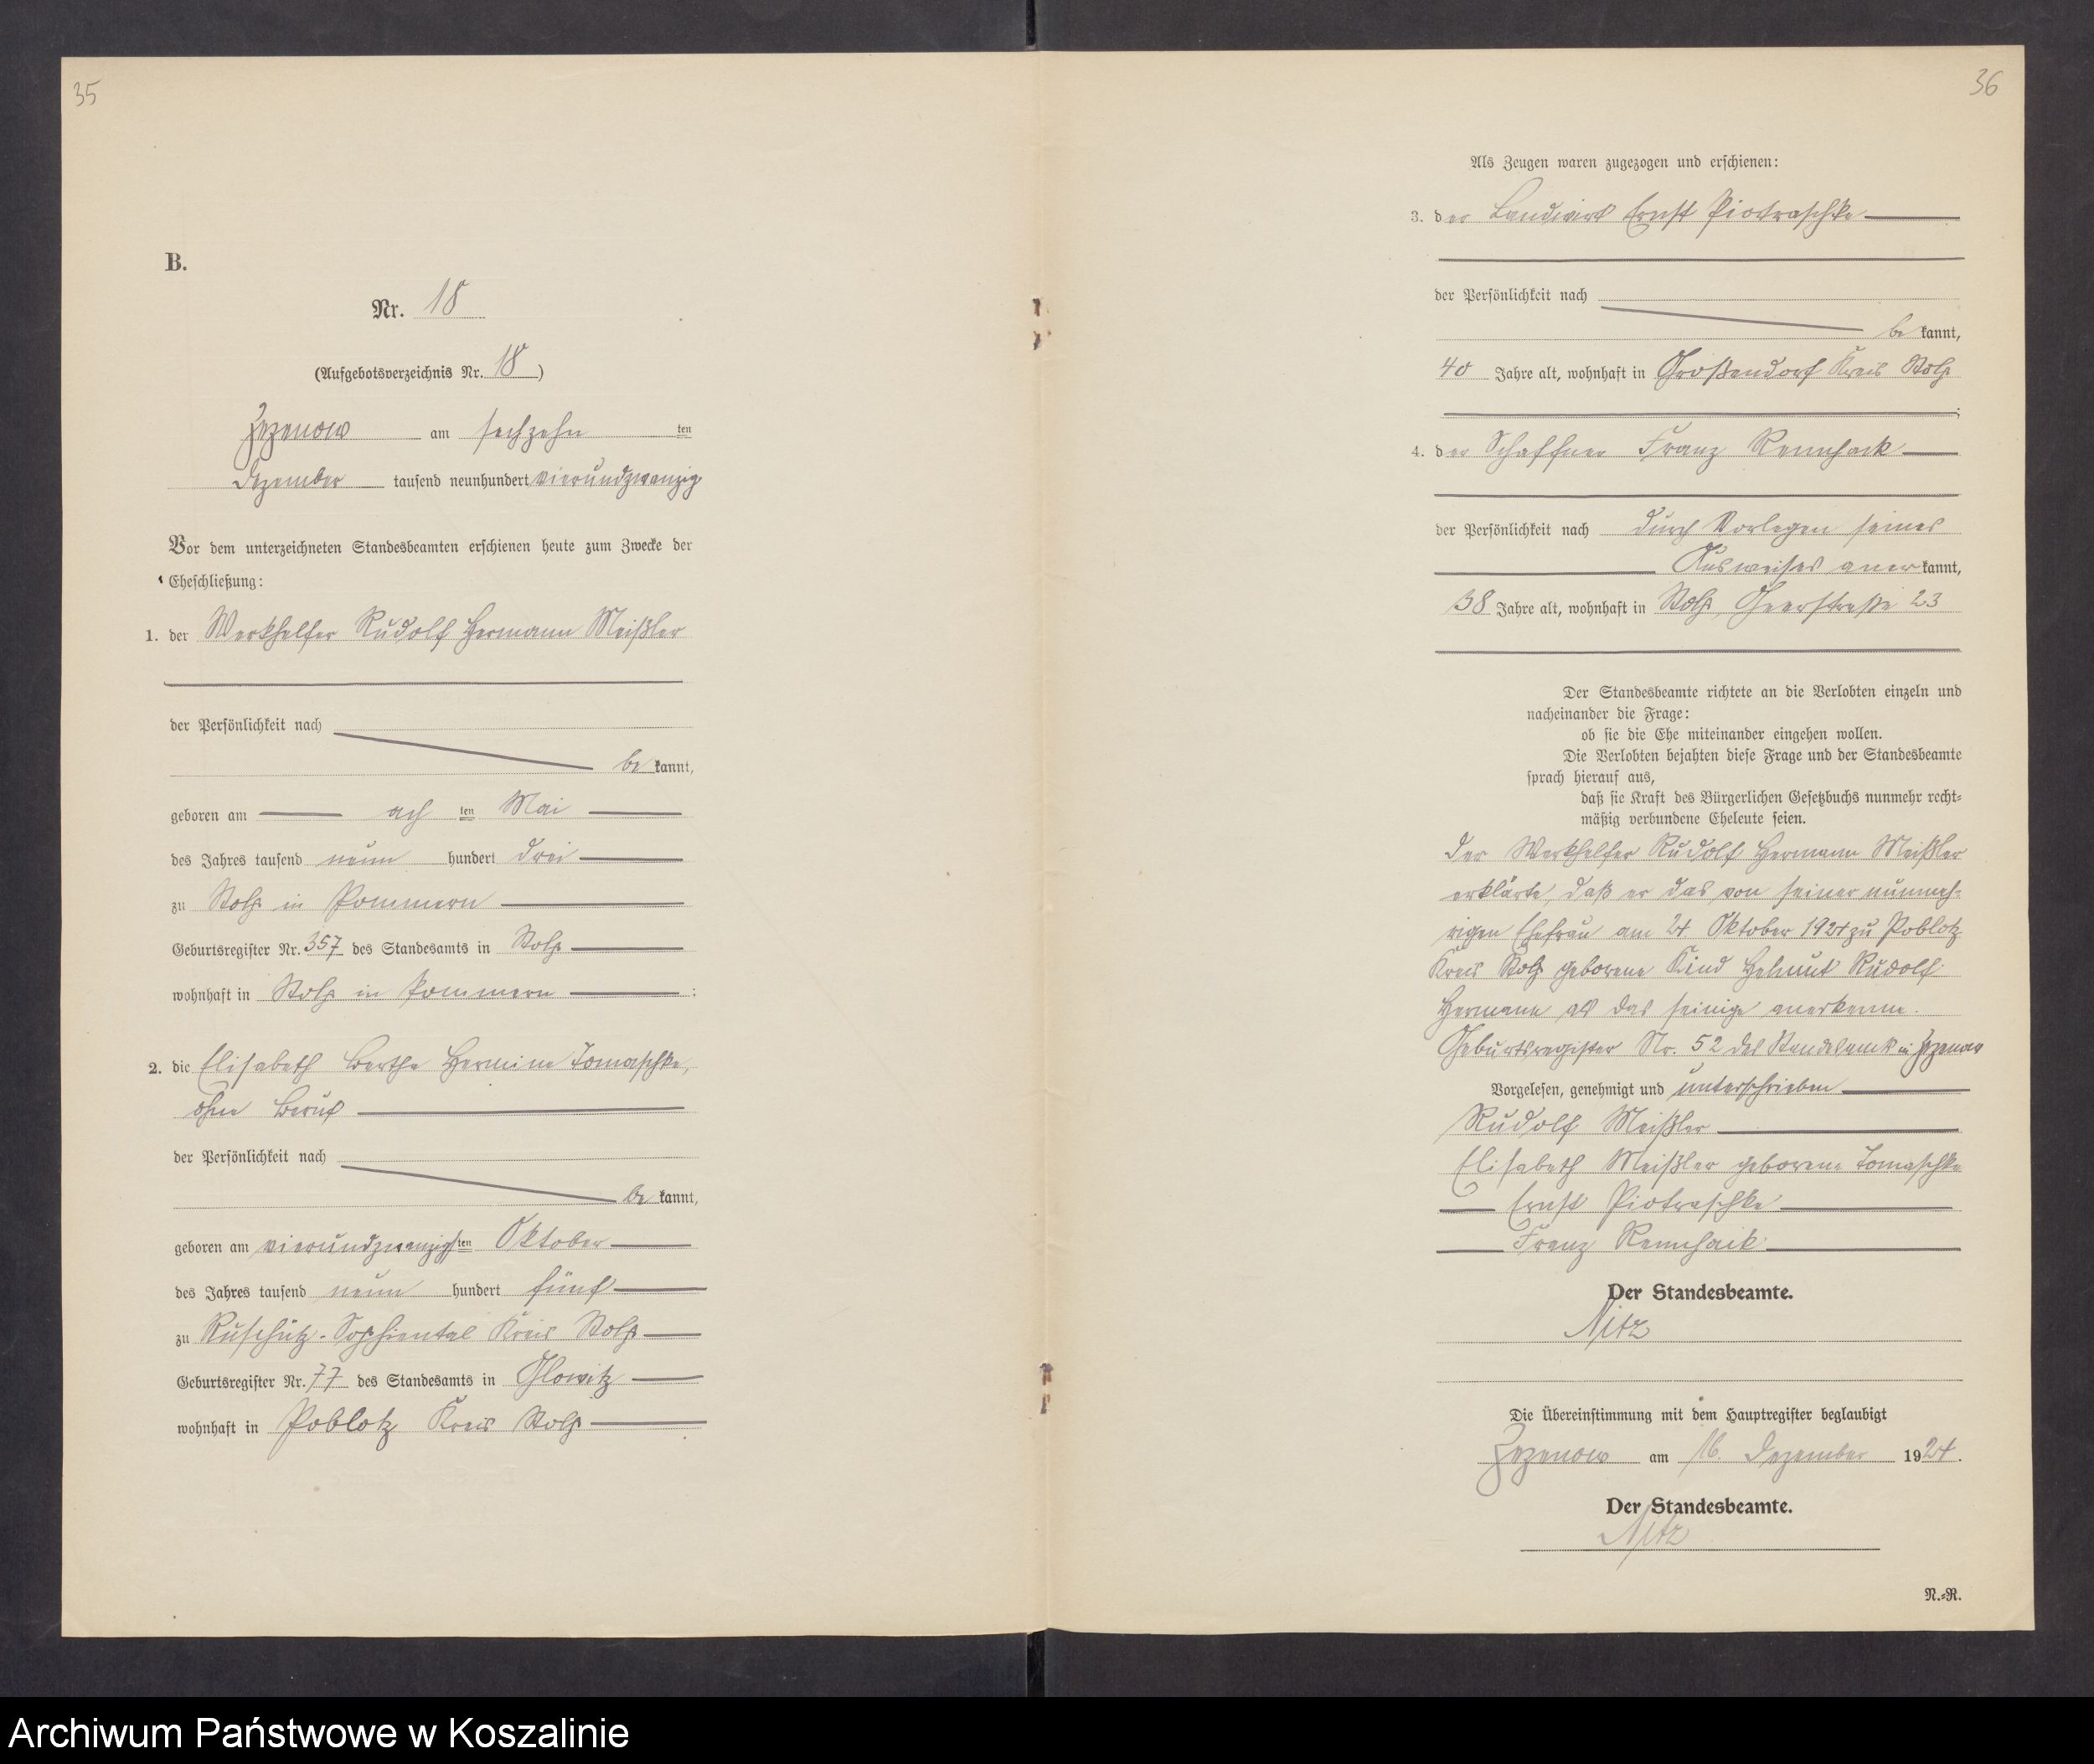 35
B.
Nr. 18
(Aufgebotsverzeichnis Nr. 18)
Zezenow am sechzehn ten
Dezember tausend neunhundert vierundzwanzig
Vor dem unterzeichneten Standesbeamten erschienen heute zum Zwecke der
Eheschließung:
1. der Werkhelfer Rudolf Hermann Meißler
der Persönlichkeit nach
be kannt,
geboren am ach ten Mai
des Jahres tausend neun hundert drei
zu Stolp in Pommern
Geburtsregister Nr. 357 des Standesamts in Stolp
wohnhaft in Stolp in Pommern ;
2. die Elisabeth Bertha Hermine Tomaschke,
ohne Beruf
der Persönlichkeit nach
be kannt,
geboren am vierundzwanzigs ten Oktober
des Jahres tausend neun hundert fünf
zu Ruschütz-Sophiental Kreis Stolp
Geburtsregister Nr. 77 des Standesamts in Glowitz
wohnhaft in Poblotz Kreis Stolp
36
Als Zeugen waren zugezogen und erschienen:
3. der Landwirt Ernst Piotraschke
der Persönlichkeit nach
be kannt,
40 Jahre alt, wohnhaft in Großendorf Kreis Stolp
;
4. der Schaffner Franz Rennhack
der Persönlichkeit nach durch Vorlegen seines
Ausweises aner kannt,
38 Jahre alt, wohnhaft in Stolp, 23
Der Standesbeamte richtete an die Verlobten einzeln und
nacheinander die Frage:
ob sie die Ehe miteinander eingehen wollen.
Die Verlobten bejahten diese Frage und der Standesbeamte
sprach hierauf aus,
daß sie Kraft des Bürgerlichen Gesetzbuchs nunmehr recht-
mäßig verbundene Eheleute seien.
Der Werkhelfer Rudolf Hermann Meißler
erklärte, daß er das von seiner nunmeh-
rigen Ehefrau am 24 Oktober 1924 zu Poblotz
Kreis Stolp geborene Kind Helmut Rudolf
Hermann als das seinige anerkenne.
Geburtsregister Nr. 52 des Standesamts in Zezenow
Vorgelesen, genehmigt und unterschrieben
Rudolf Meißler
Elisabeth Meißler geborene Tomaschke
Ernst Piotraschke
Franz Rennhack
Der Standesbeamte.
Nitz
Die Übereinstimmung mit dem Hauptregister beglaubigt
Zezenow am 16. Dezember 1924.
Der Standesbeamte.
Nitz
N.-R.
Archiwum Państwowe w Koszalinie